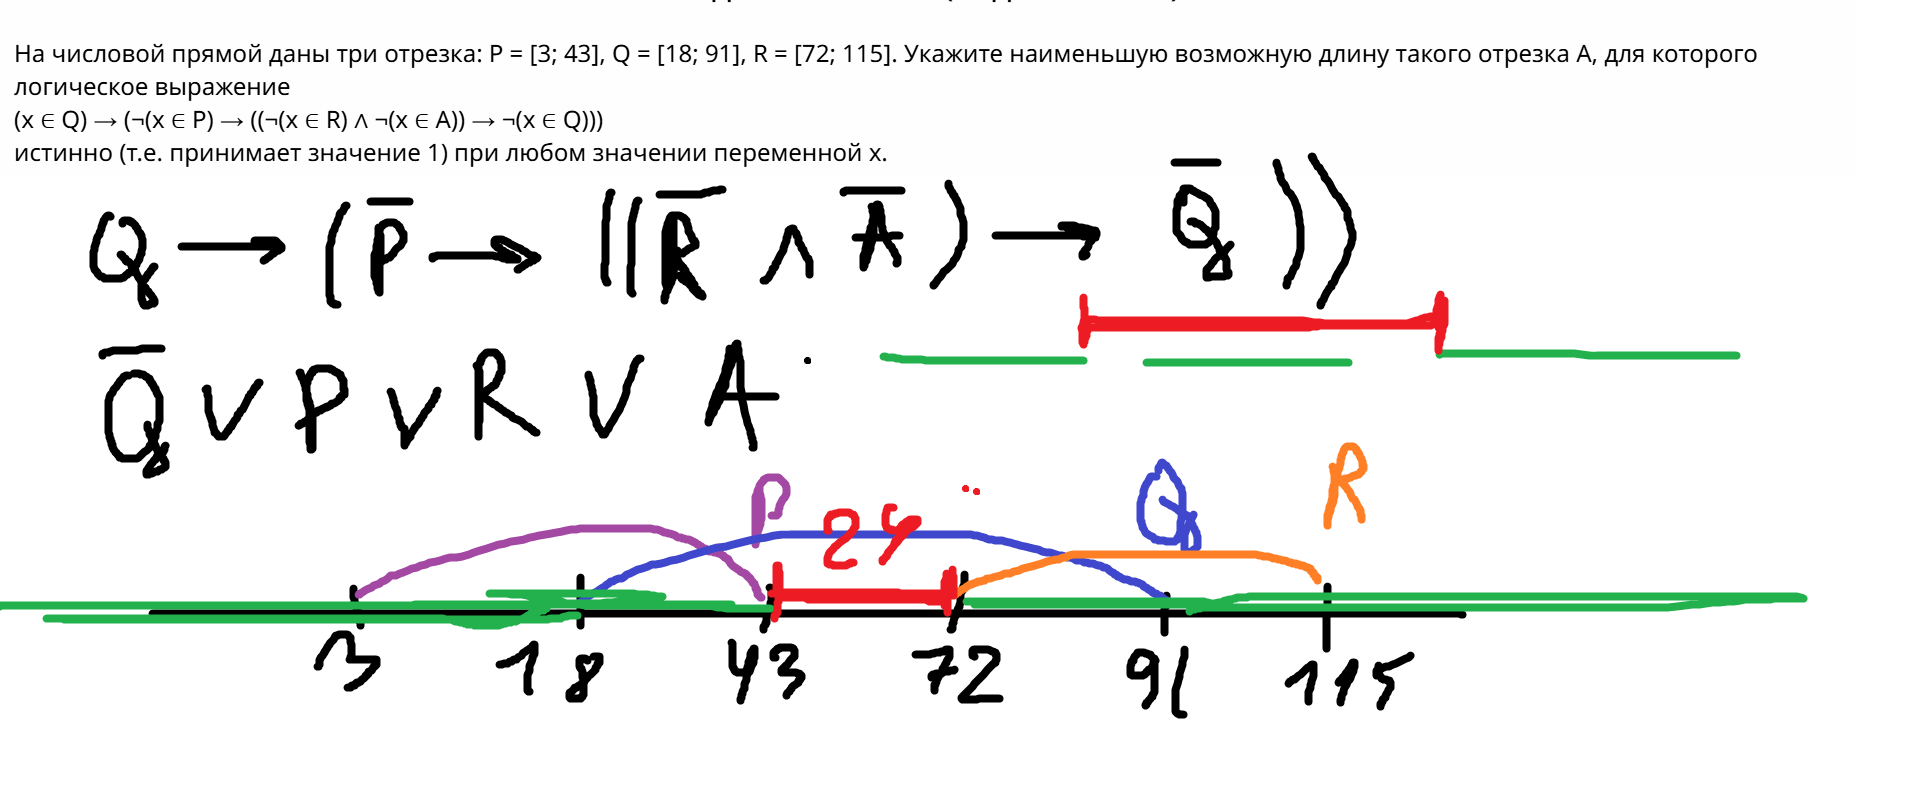 На числовой прямой даны три отрезка: P = [3; 43], Q = [18; 91], R = [72; 115]. Укажите наименьшую возможную длину такого отрезка A, для которого
логическое выражение
(x ∈ Q) → (¬(x ∈ P) → ((¬(x ∈ R) ∧ ¬(x ∈ A)) → ¬(x ∈ Q)))
истинно (т.е. принимает значение 1) при любом значении переменной x.
Q → (P̅ → ((R̅ ∧ A̅) → Q̅))
Q̅ ∨ P ∨ R ∨ A
P 29 Q R
3 18 43 72 91 115